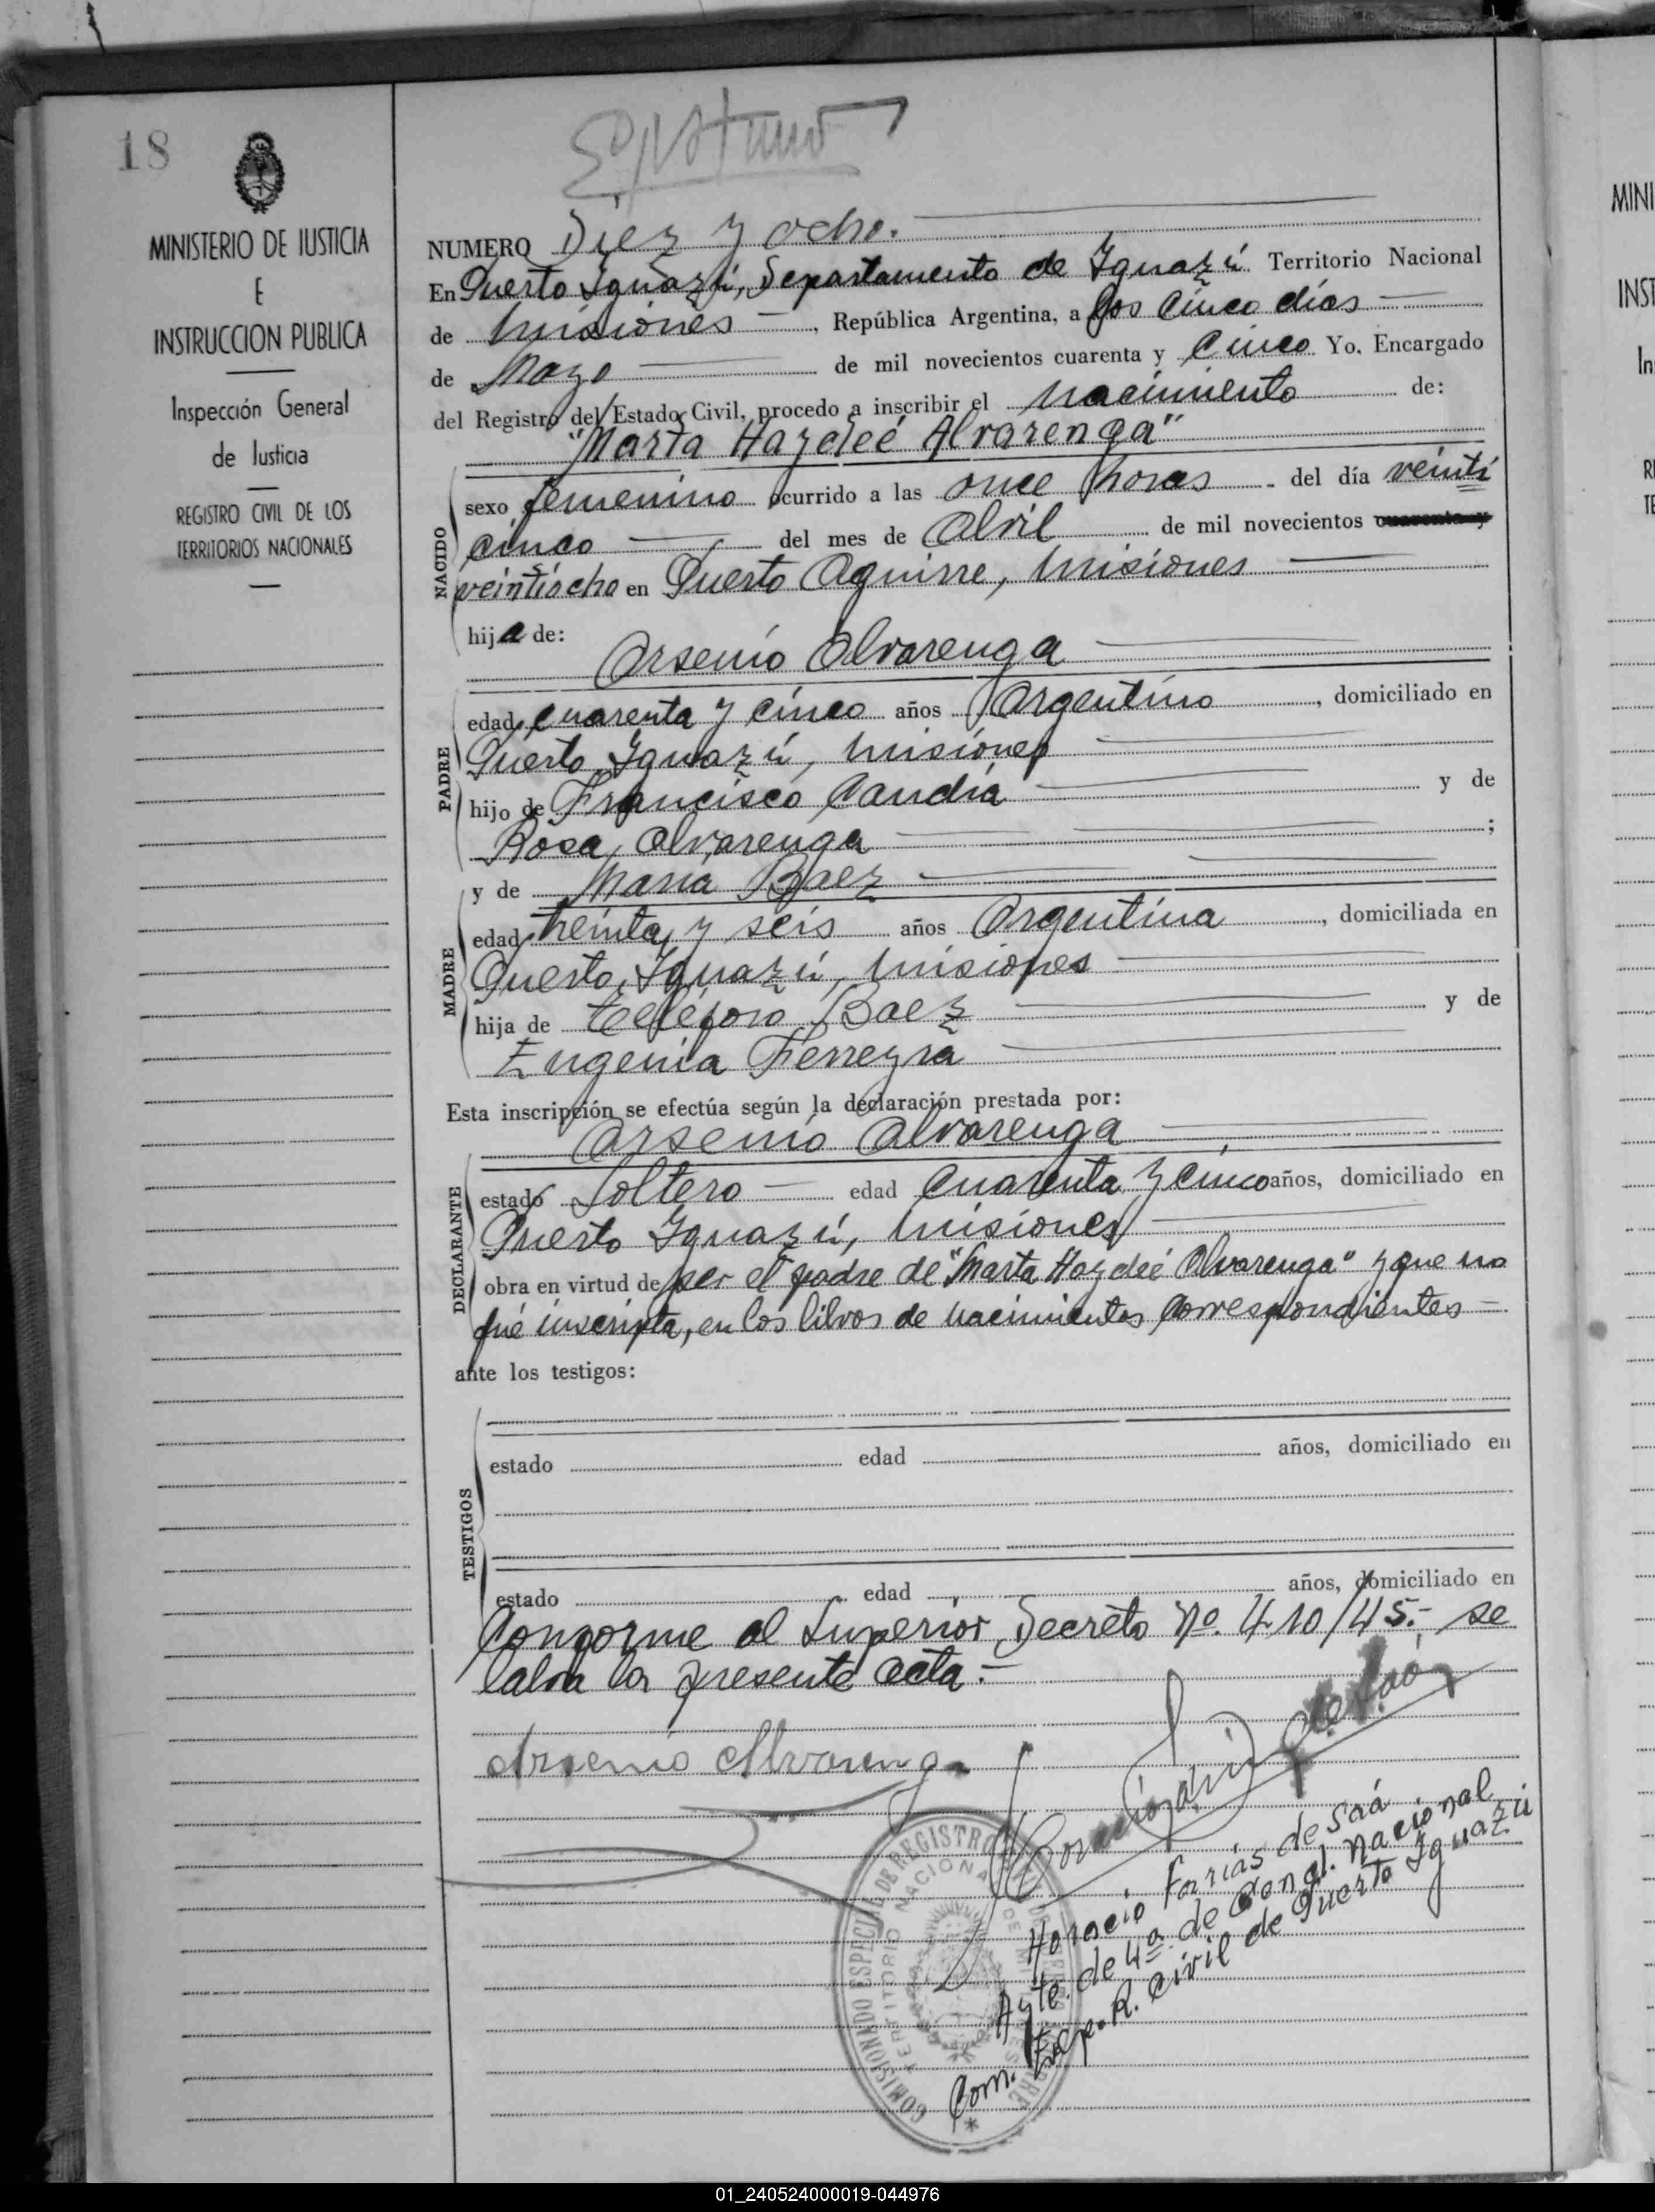 18
MINISTERIO DE JUSTICIA
E
INSTRUCCION PUBLICA
Inspección General
de Justicia
REGISTRO CIVIL DE LOS
TERRITORIOS NACIONALES
NUMERO Diez y ocho.
En Puerto Iguazú, Departamento de Iguazú Territorio Nacional
de Misiones, República Argentina, a los cinco días
de Mayo de mil novecientos cuarenta y cinco Yo, Encargado
del Registro del Estado Civil, procedo a inscribir el nacimiento de:
"Marta Haydeé Alvarenga"
NACIDO
sexo femenino ocurrido a las once horas del día veinti
cinco del mes de Abril de mil novecientos cuarenta y
veintiocho en Puerto Aguirre, Misiones
hija de:
Arsenio Alvarenga
PADRE
edad cuarenta y cinco años Argentino, domiciliado en
Puerto Iguazú, Misiones
hijo de Francisco Candia y de
Rosa Alvarenga;
y de Maria Baez
MADRE
edad treinta y seis años Argentina, domiciliada en
Puerto Iguazú, Misiones
hija de Teléforo Baez y de
Eugenia Ferreyra
Esta inscripción se efectúa según la declaración prestada por:
Arsenio Alvarenga
DECLARANTE
estado Soltero edad cuarenta y cinco años, domiciliado en
Puerto Iguazú, Misiones
obra en virtud de ser el padre de "Marta Haydeé Alvarenga" y que no
fué inscripta, en los libros de nacimientos correspondientes
ante los testigos:
TESTIGOS
estado edad años, domiciliado en
estado edad años, domiciliado en
Conforme al Superior Decreto Nº. 410/45.- se
labra la presente acta.-
Arsenio Alvarenga
Horacio Farías de Saá
Ayte. de 4ª de Genal. Nacional
Com. Esp. R. Civil de Puerto Iguazú
COMISIONADO ESPECIAL DE REGISTRO
TERRITORIO NACIONAL DE MISIONES
MINI
INST
In
01_240524000019-044976